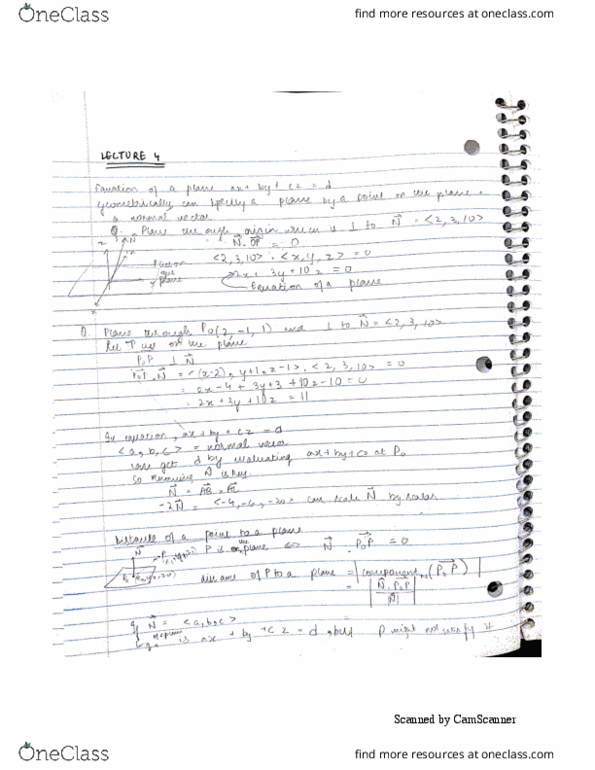 OneClass
find more resources at oneclass.com
LECTURE 4
Equation of a plane ax + by + cz = d
geometrically can specify a plane by a point on the plane +
a normal vector.
Q. Plane through origin which is ⊥ to N = <2, 3, 10>
N . OP = 0
<2, 3, 10> . <x, y, z> = 0
2x + 3y + 10z = 0
Equation of a plane
Q. Plane through P0(2, -1, 1) and ⊥ to N = <2, 3, 10>
let P be on the plane
P0P ⊥ N
P0P . N = <(x-2), y+1, z-1> . <2, 3, 10> = 0
= 2x - 4 + 3y + 3 + 10z - 10 = 0
= 2x + 3y + 10z = 11
In equation, ax + by + cz = d
<a, b, c> = normal vector
can get d by evaluating ax + by + cz at P0
so N is key
N = AB × AC
can scale N by scalar
Distance of a point to a plane
P is on the plane ⇔ N . P0P = 0
distance of P to a plane = | component (P0P) |
= | N . P0P |
|N|
N = <a, b, c>
is ax + by + cz = d, but P might not satisfy it
Scanned by CamScanner
OneClass
find more resources at oneclass.com